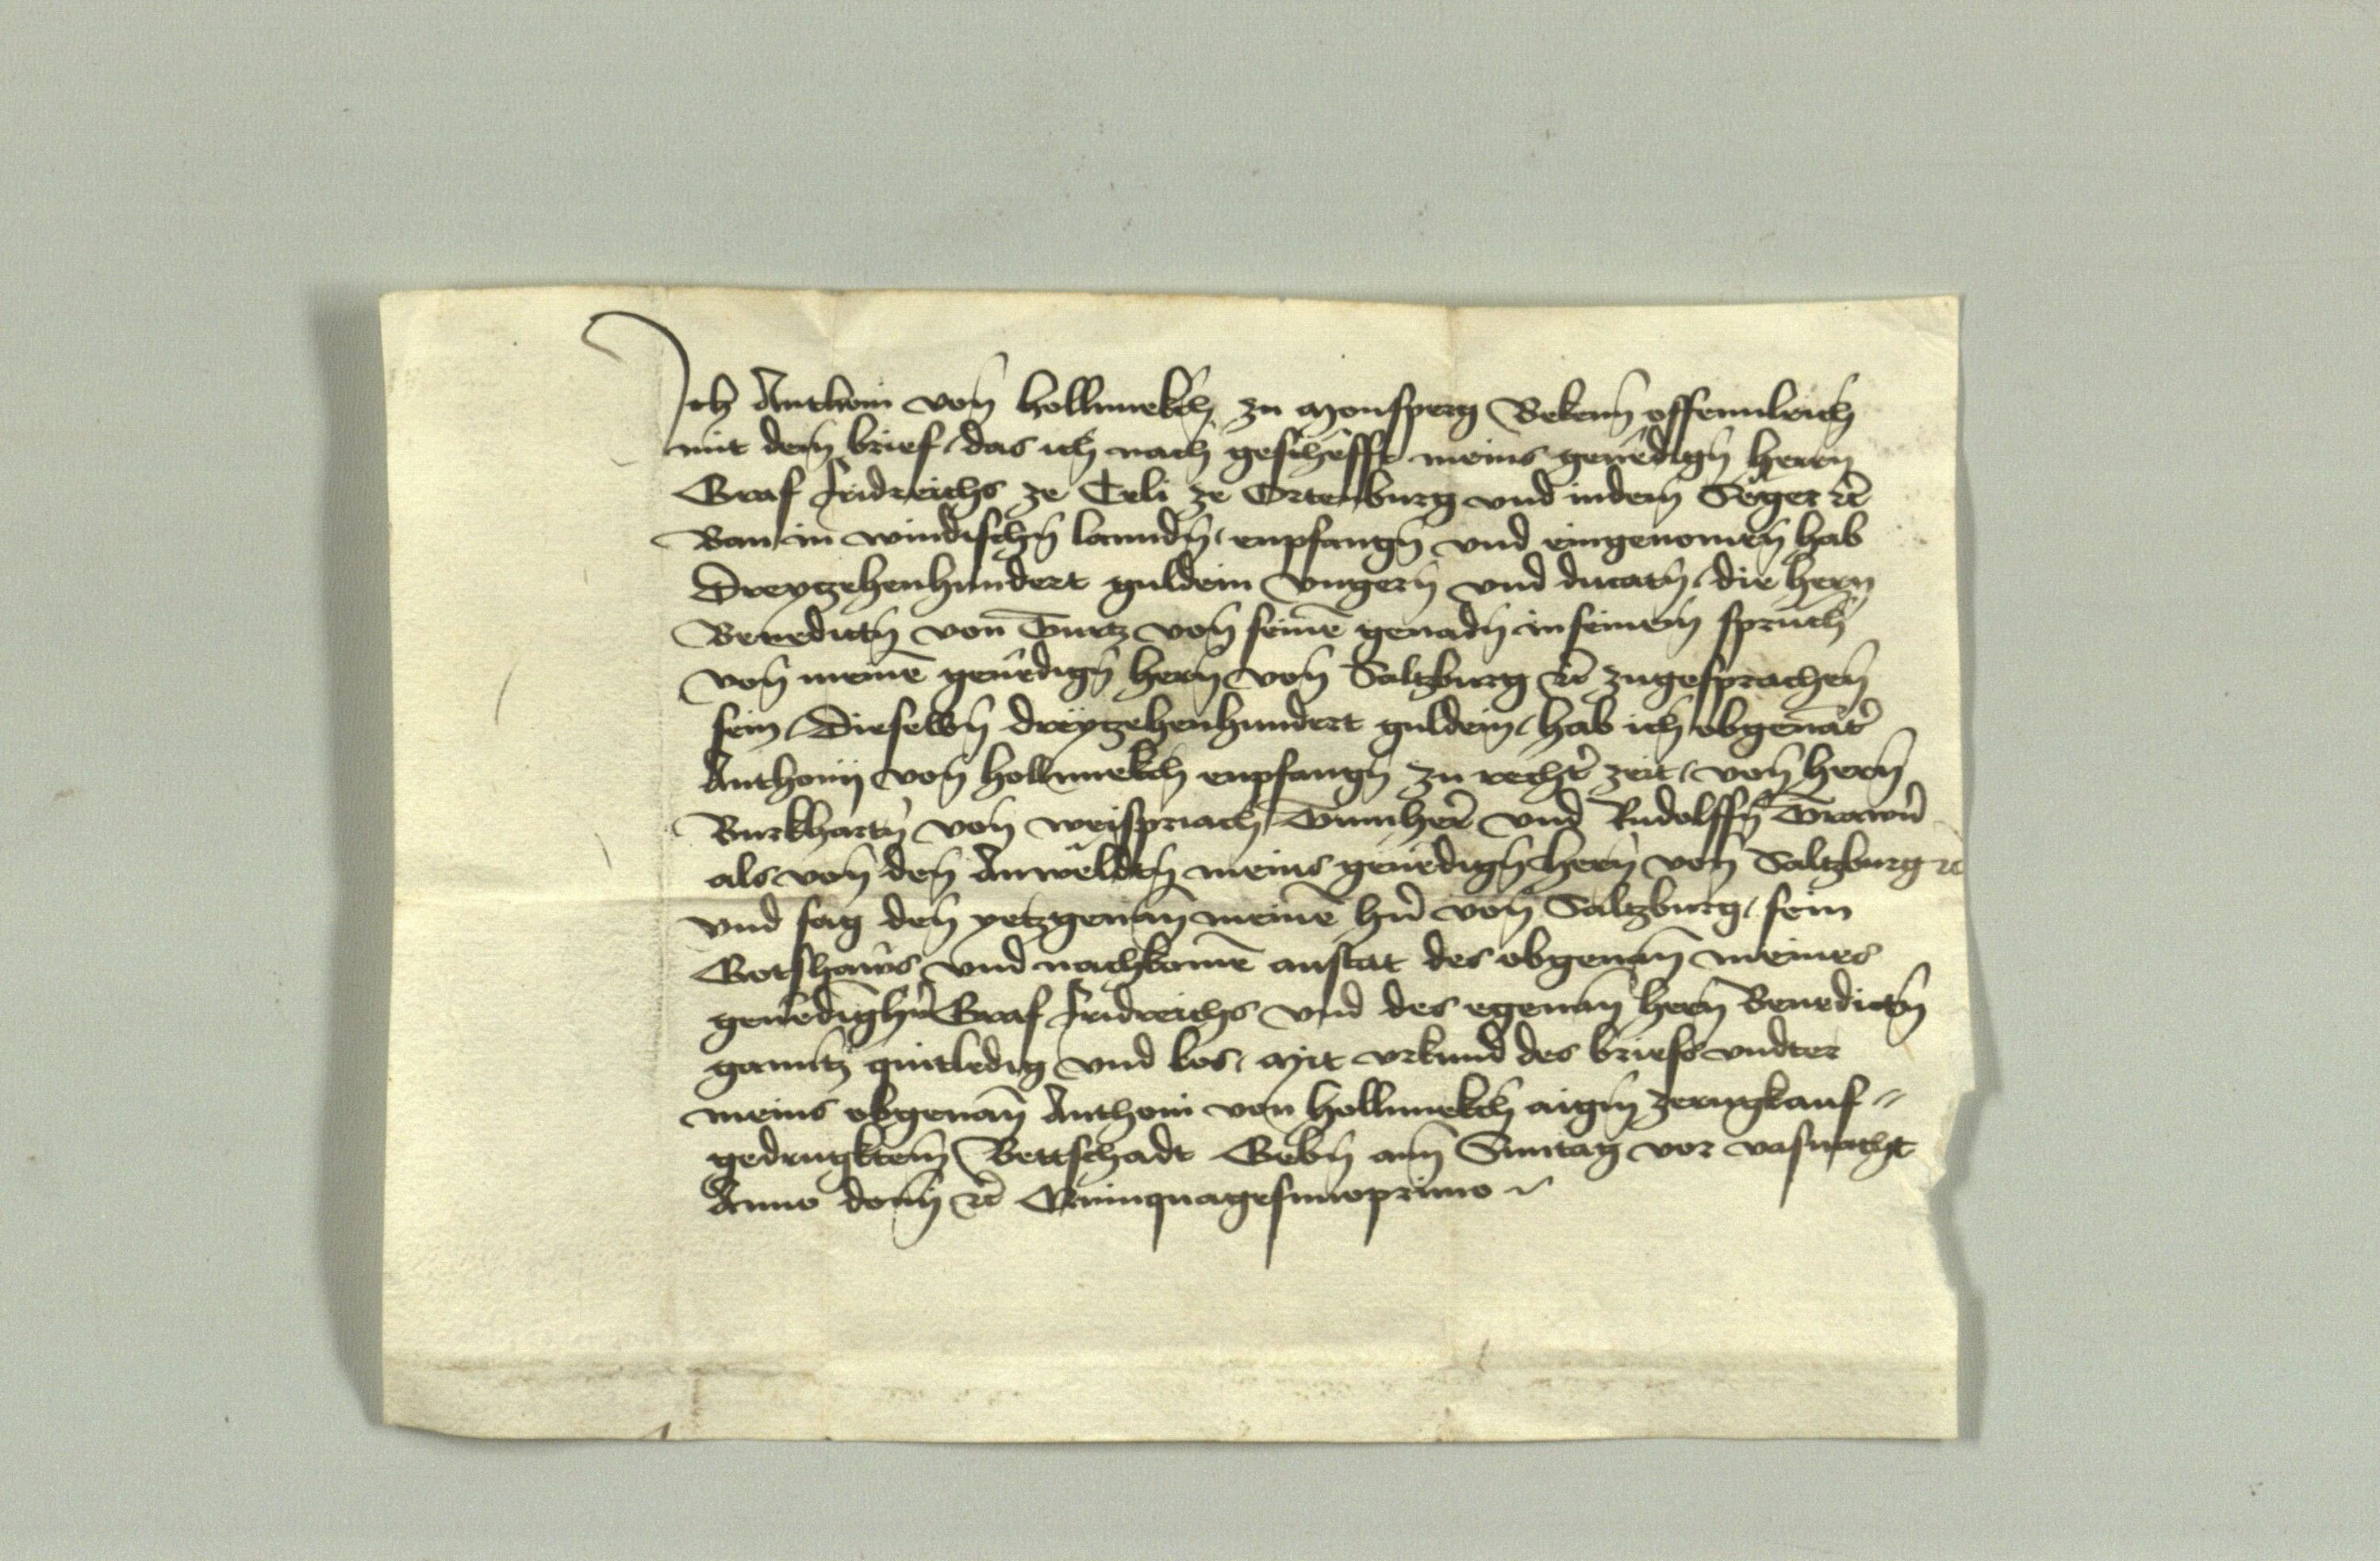 Ich Anthoni von hollnnekch zu Monsperg Bekenn offennleich
mit dem brief, das ich nach geschêfft meins genêdign herrn
Graf Fridreichs ze Cili ze Ortenburg vnd in dem Seger etc
Ban in windischn lanndn, enpfangn vnd eingenomen hab
Dreytzehenhundert guldein vngern vnd ducatn, die hern
Benedictn von Turtz von seinē genadn in seinem spruch
von meinē genêdign hern von Saltzburg etc zugesprachen
sein, Dieselbn dreytzehenhundert guldein, hab ich obgenāt̉
Anthonij von hollnnekch enpfangn zu recht̉ zeit, von hern
Burkhartn von weispriach Tumher̄ vnd Rudolffn Trawn̉
als von den Anwêldtn meins genêdign hern von Saltzburg etc
vnd sag den yetzgenan̄ meinē hn̉ von Saltzburg, sein
Gotshaws vnd nachkomē anstat des obgenan̄ meines
genêdign hn̉ Graf Fridreichs vnd des egenan̄ hern Benedictn
ganntz quitledig vnd los, Mit vrkund des briefs vndter
meins obgenan̄ Anthoni von hollnnekch aign zerugkauf=
gedrugktem Bettschadt Gebn am Suntag vor vasnacht
Anno domi etc Quinquagesimoprimo